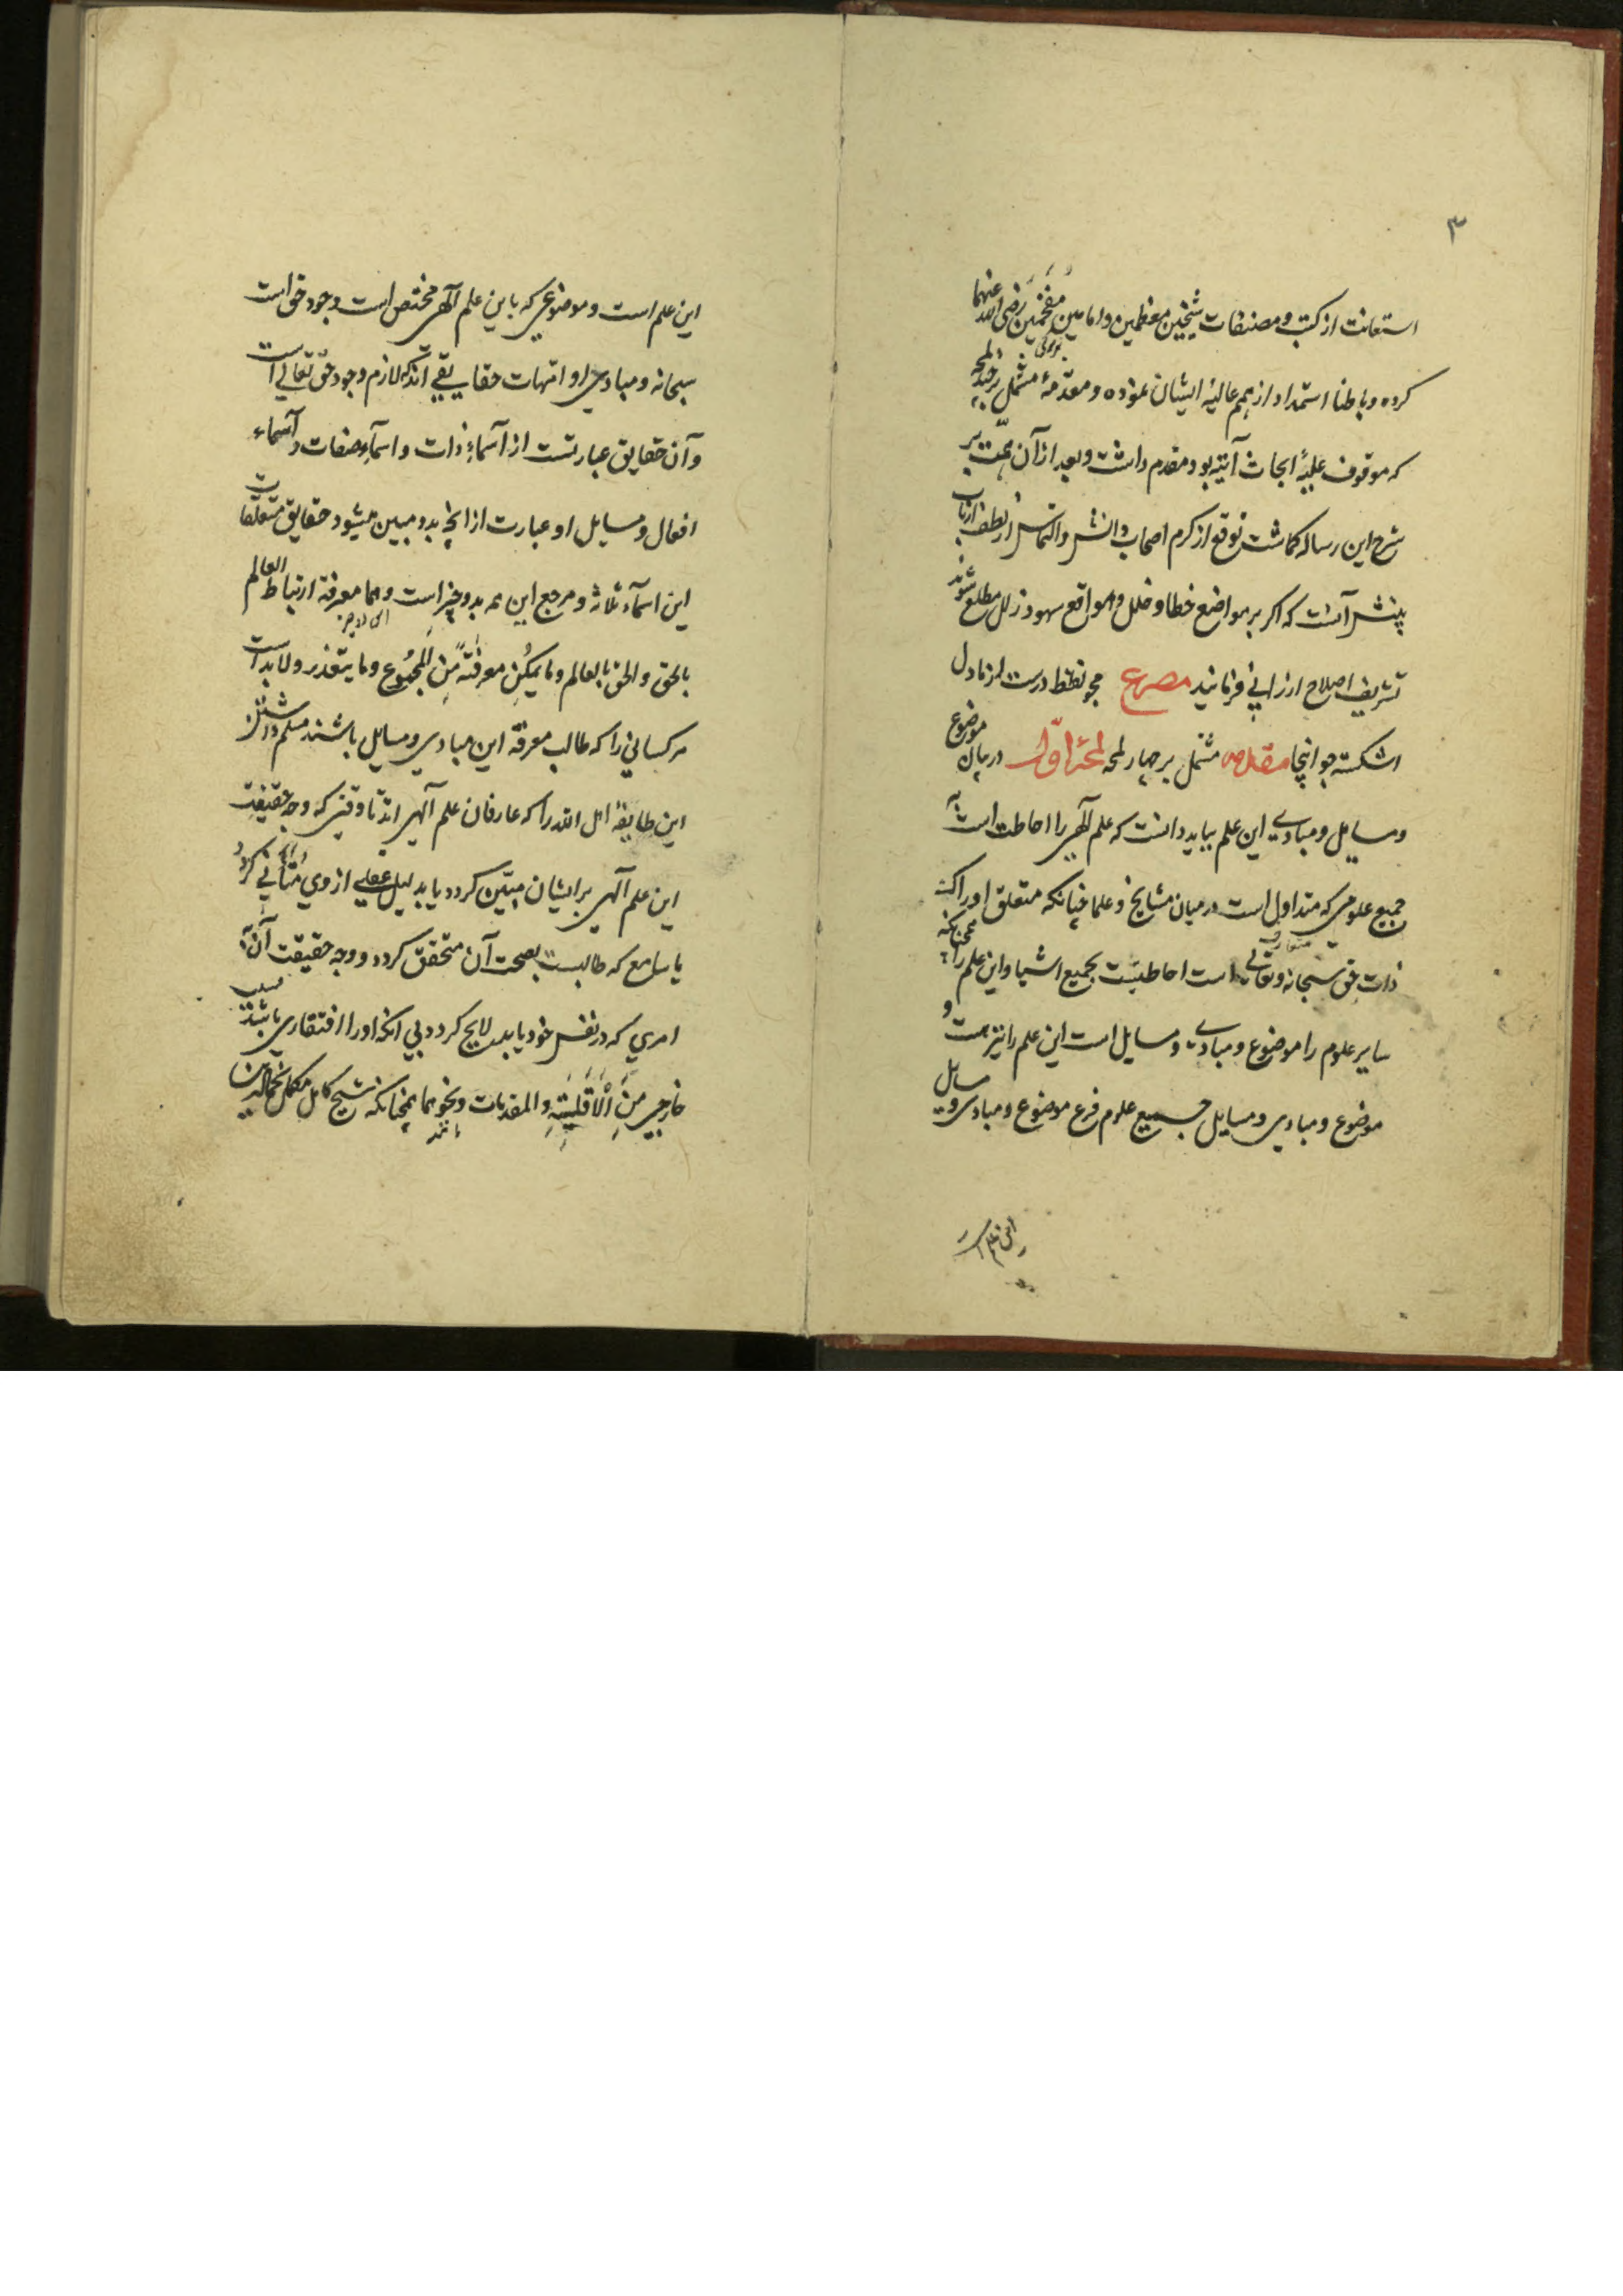 ٣
استعانت از کتب و مصنفات شیخین معظمین و امامین مفخمین رضی الله عنهما
کرده و باطنا استمداد از همم عالیهٔ ایشان نموده و مقدمهٔ مشتمل بر چند لمحه
که موقوف علیه ابحاث آتیه بود مقدم داشت و بعد از آن همت بر
شرح این رساله گماشت توقع از کرم اصحاب دانش و التماس از لطف ارباب
بینش آنست که اگر بر مواضع خطا و خلل و مواقع سهو و زلل مطلع شوند
تشریف اصلاح ارزانی فرمایند مصرع مجو نقط درست از ما دل
اشکسته جو اینجا مقدمه مشتمل بر چهار لمحه لمحهٔ اول در بیان موضوع
و مسایل و مبادی این علم بباید دانست که علم آلهی را احاطت است به
جمیع علومی که متداول است در میان مشایخ و علما چنانکه متعلق او را که
ذات حق سبحانه و تعالی است احاطتست بجمیع اشیا و این علم را همچنانکه
سایر علوم را موضوع و مبادی و مسایل است این علم را نیز هست و
موضوع و مبادی و مسایل جمیع علوم فرع موضوع و مبادی و مسایل
این علم است
این علم است و موضوعی که باین علم آلهی مختص است وجود حق است
سبحانه و مبادی او امهات حقایقی اند که لازم وجود حق تعالی است
و آن حقایق عبارتست از اسماء ذات و اسماء صفات و اسماء
افعال و مسایل او عبارت از آنچه بدو مبین میشود حقایق متعلقات
این اسماء ثلاثه و مرجع این همه بدو چیز است و هما معرفة ارتباط العالم
بالحق و الحق بالعالم و ما یمکن معرفته من المجموع و ما یتعذر و لابد است
مر کسانی را که طالب معرفة این مبادی و مسایل باشند مسلم داشتن
این طایفهٔ اهل الله را که عارفان علم آلهی اند تا وقتی که وجه حقیقت
این علم آلهی بر ایشان مبین کردد یا بدلیل عقلی از وی متأنی کردد
یا سامع که طالبست بصحت آن متحقق کردد و وجه حقیقت آن به
امری که در نفس خود یابد لایح کردد بی آنکه او را افتقاری باشد بسبب
خارجی من الاقلیسة و المقدمات و نحوهما همچنانکه شیخ کامل مکمل نجم الدین